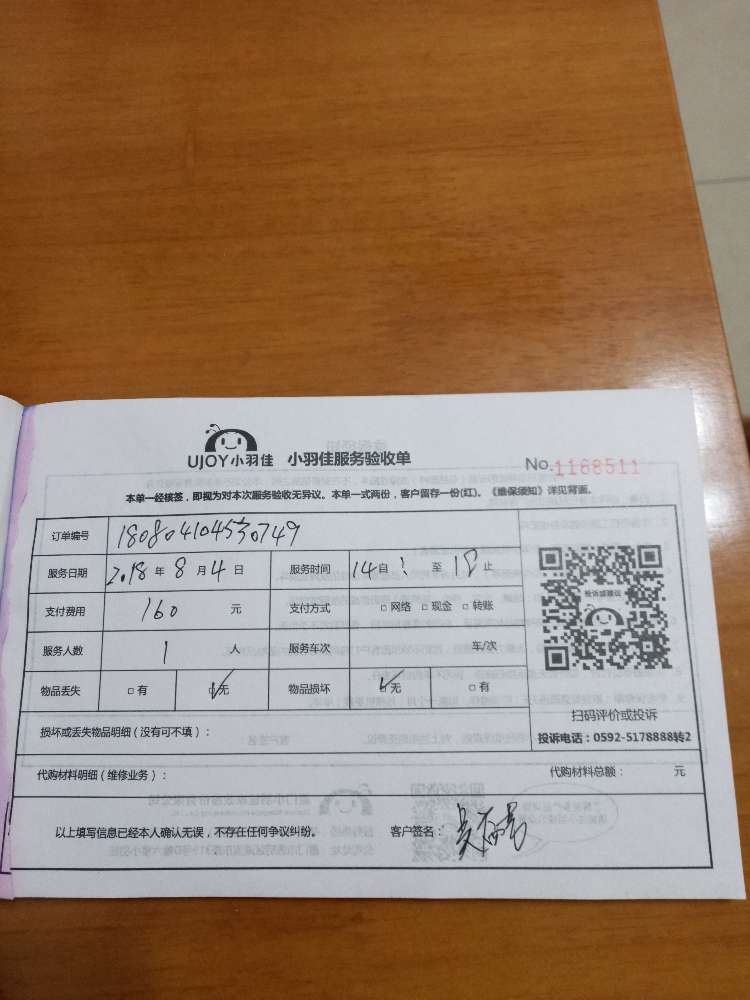 UJOY小羽佳 小羽佳服务验收单 No.1168511
本单一经核签，即视为对本次服务验收无异议。本单一式两份，客户留存一份(红)。《维保须知》详见背面。
订单编号 180804104530749
服务日期 2018年8月4日 服务时间 14自 至18止
支付费用 160 元 支付方式 □网络 □现金 □转账
服务人数 1 人 服务车次 车/次
物品丢失 □有 □无 物品损坏 □无 □有
投诉或建议
扫码评价或投诉
投诉电话：0592-5178888转2
损坏或丢失物品明细（没有可不填）：
代购材料明细（维修业务）： 代购材料总额： 元
以上填写信息已经本人确认无误，不存在任何争议纠纷。 客户签名：